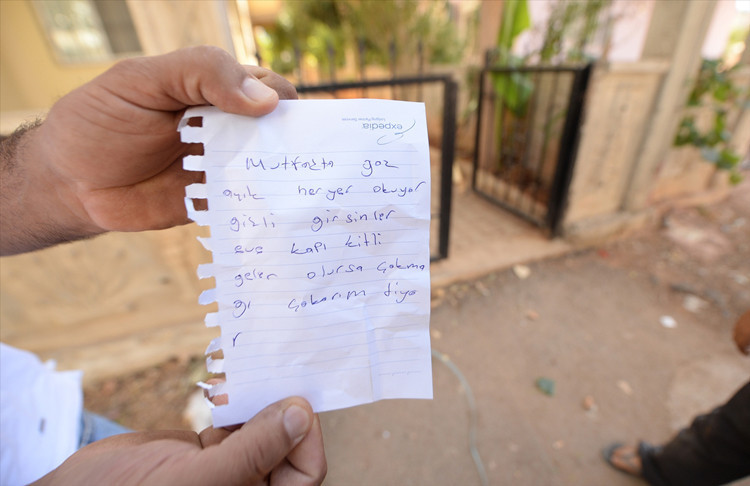 expedia
Mutfakta gaz
açık her yer okuyor
gizli girsinler
eve kapı kitli
gelen olursa çakma
ğı çakarım diyo
r